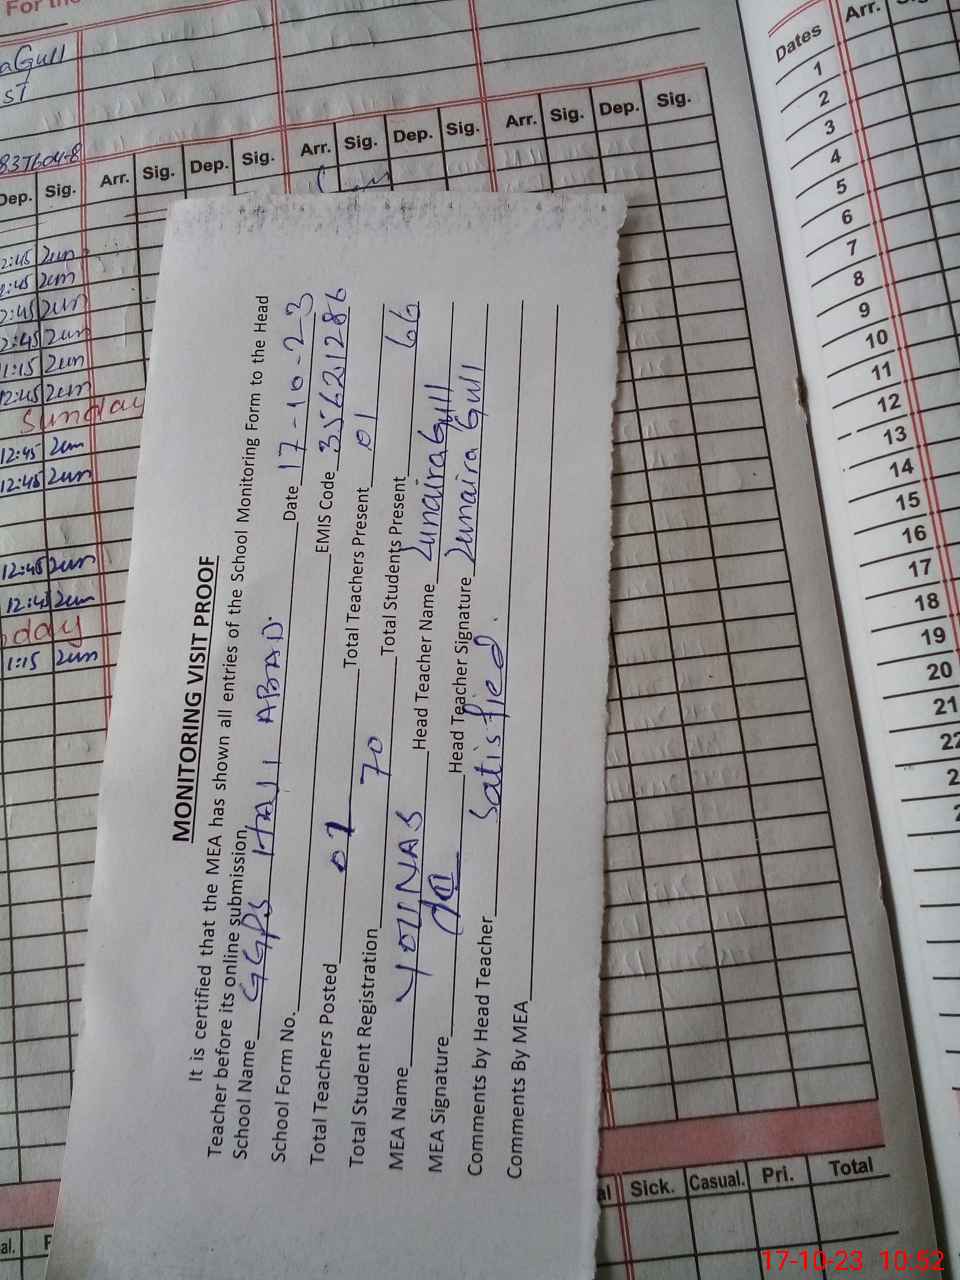 For the
aGull
ST
837604-8
Dep. Sig. Arr. Sig. Dep. Sig. Arr. Sig. Dep. Sig. Arr. Sig. Dep. Sig.
2:45 Zun
2:45 Zun
2:45 Zun
2:45 Zun
1:15 Zun
12:45 Zun
Sunday
12:45 Zun
12:45 Zun
12:45 Zun
12:45 Zun
day
1:15 Zun
MONITORING VISIT PROOF
It is certified that the MEA has shown all entries of the School Monitoring Form to the Head
Teacher before its online submission.
School Name GGPS HAJI ABAD. Date 17-10-23
School Form No. EMIS Code 35621286
Total Teachers Posted 01 Total Teachers Present 01
Total Student Registration 70 Total Students Present 66
MEA Name YOUNAS Head Teacher Name Zunaira Gull
MEA Signature Head Teacher Signature Zunaira Gull
Comments by Head Teacher Satisfied.
Comments By MEA
Dates Arr.
1
2
3
4
5
6
7
8
9
10
11
12
13
14
15
16
17
18
19
20
21
22
2
2
al Sick. Casual. Pri. Total
al.
17-10-23 10:52